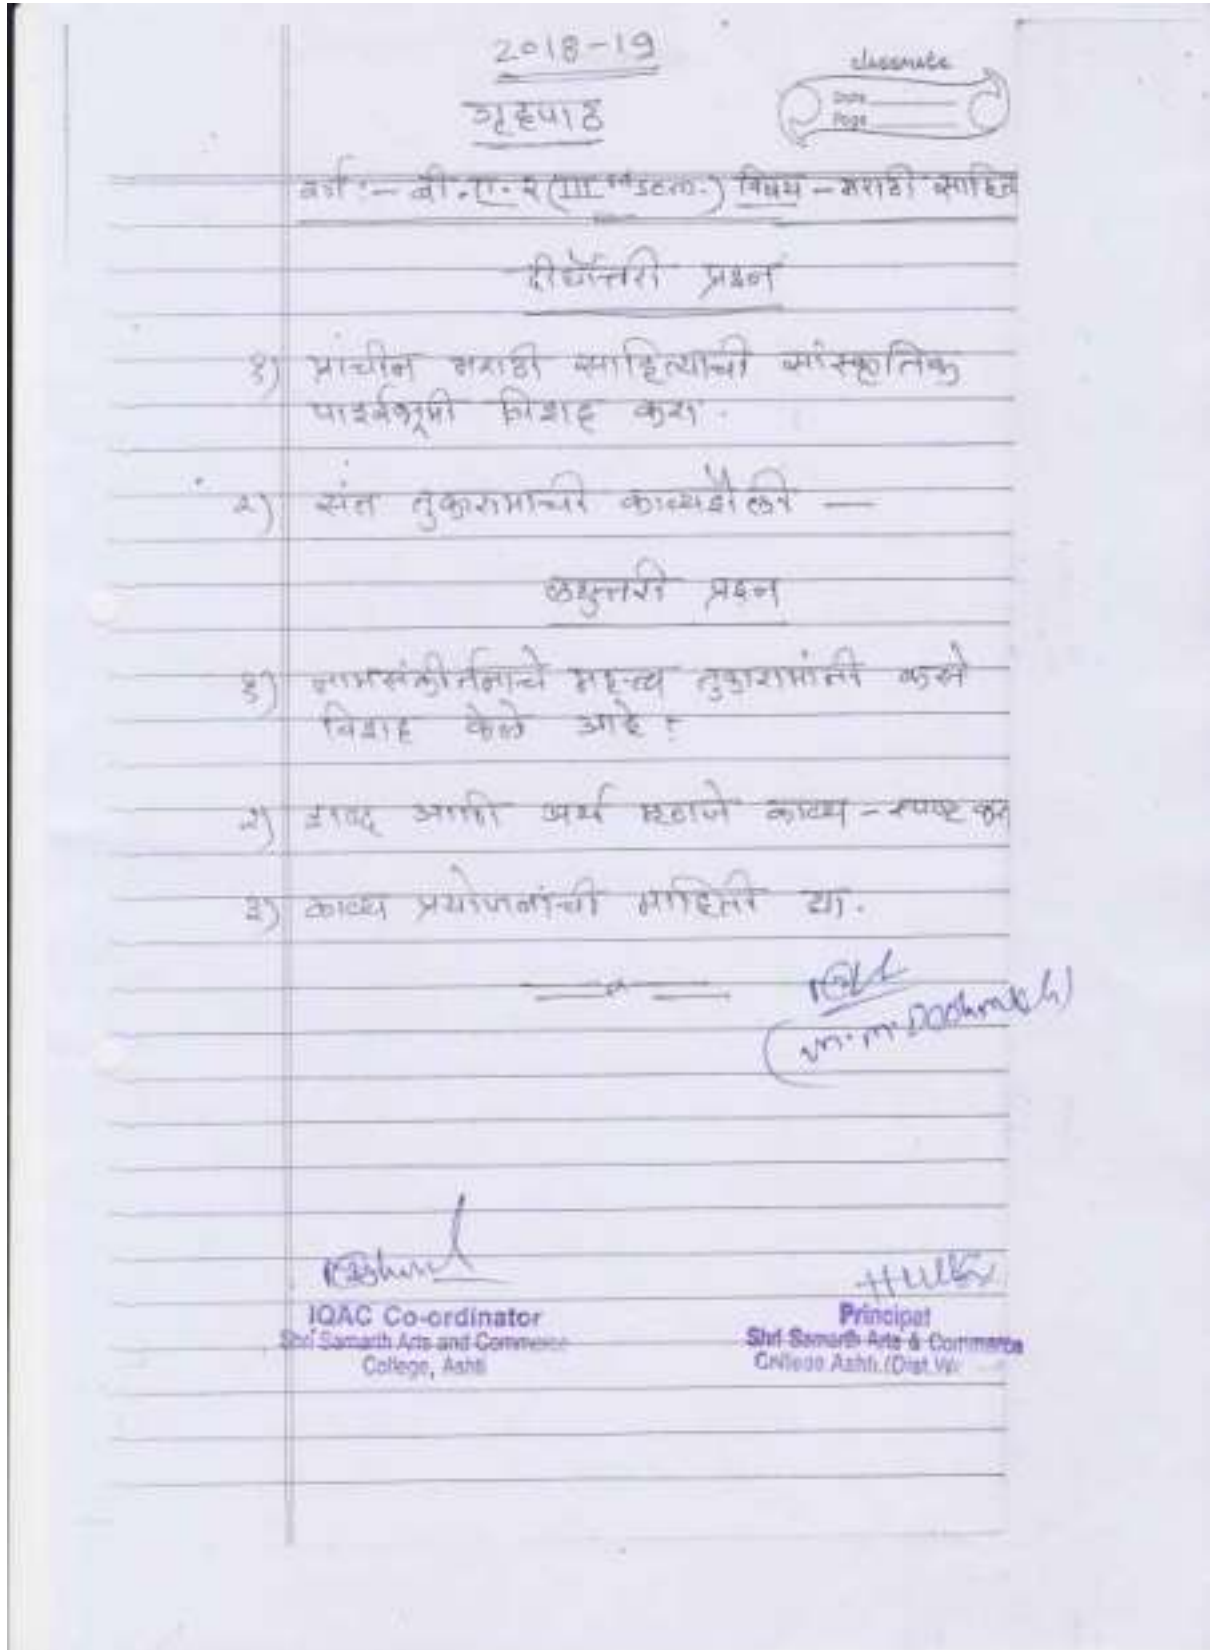 2018-19
classmate
Date
Page
गृहपाठ
वर्ग :- बी.ए. २ (III rd sem.) विषय - मराठी साहित्य
दीर्घोत्तरी प्रश्न
१) प्राचीन मराठी साहित्याची सांस्कृतिक
पार्श्वभूमी विशद करा.
२) संत तुकारामाची काव्यशैली —
लघुत्तरी प्रश्न
१) नामसंकीर्तनाचे महत्व तुकारामांनी कसे
विशद केले आहे ?
२) शब्द आणि अर्थ म्हणजे काव्य - स्पष्ट करा
३) काव्य प्रयोजनांची माहिती द्या.
(m.m. Deshmukh)
IQAC Co-ordinator
Shri Samarth Arts and Commerce
College, Ashti
Principal
Shri Samarth Arts & Commerce
College Ashti.(Dist.W